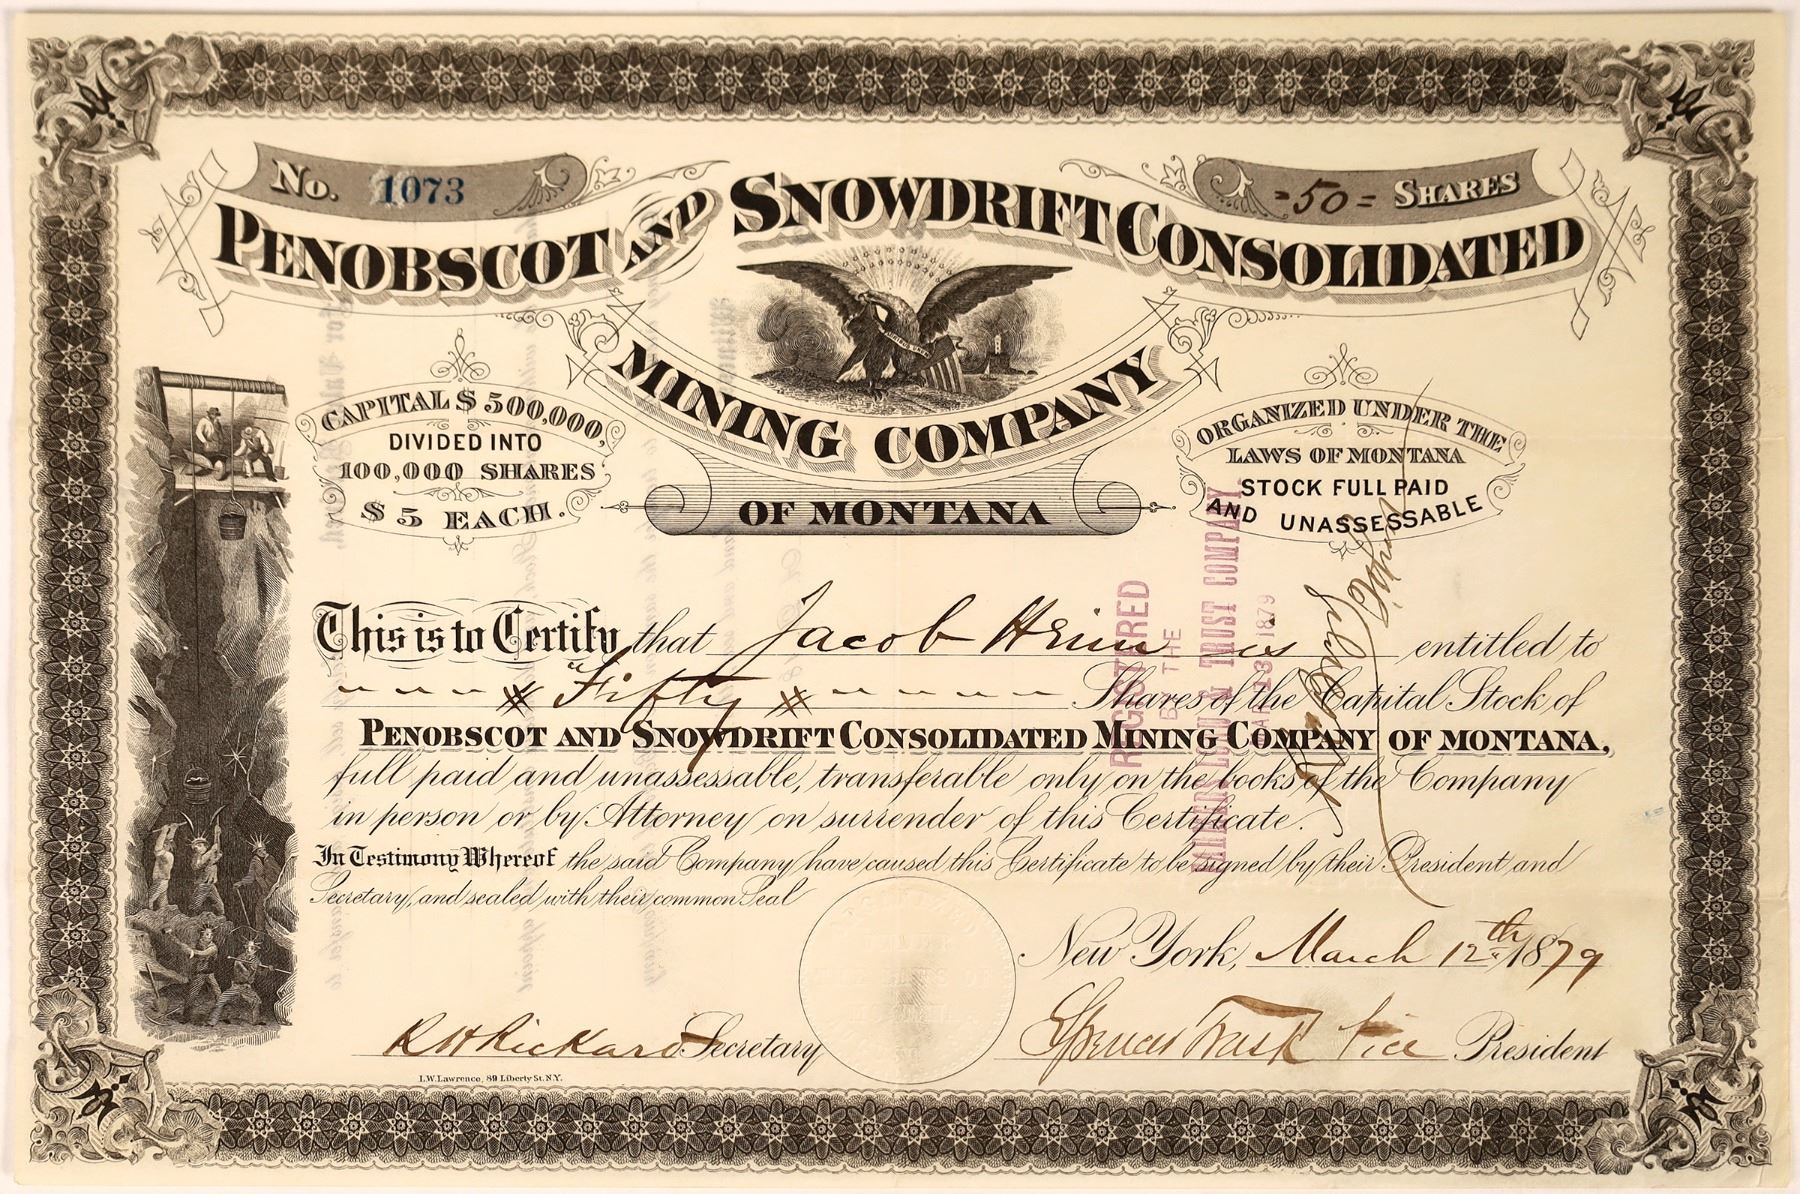 No. 1073
=50= SHARES
PENOBSCOT AND SNOWDRIFT CONSOLIDATED
MINING COMPANY
OF MONTANA
CAPITAL $ 500,000,
DIVIDED INTO
100,000 SHARES
$ 5 EACH.
ORGANIZED UNDER THE
LAWS OF MONTANA
STOCK FULL PAID
AND UNASSESSABLE
This is to Certify that Jacob is entitled to
Fifty Shares of the Capital Stock of
PENOBSCOT AND SNOWDRIFT CONSOLIDATED MINING COMPANY OF MONTANA,
full paid and unassessable, transferable only on the books of the Company
in person or by Attorney on surrender of this Certificate.
In Testimony Whereof the said Company have caused this Certificate to be signed by their President and
Secretary, and sealed with their common Seal
New York, March 12th 1879
R H Rickard Secretary
Spencer Trask Vice President
L.W. Lawrence, 89 Liberty St. N.Y.
REGISTERED
BY THE
TRUST COMPANY
1879